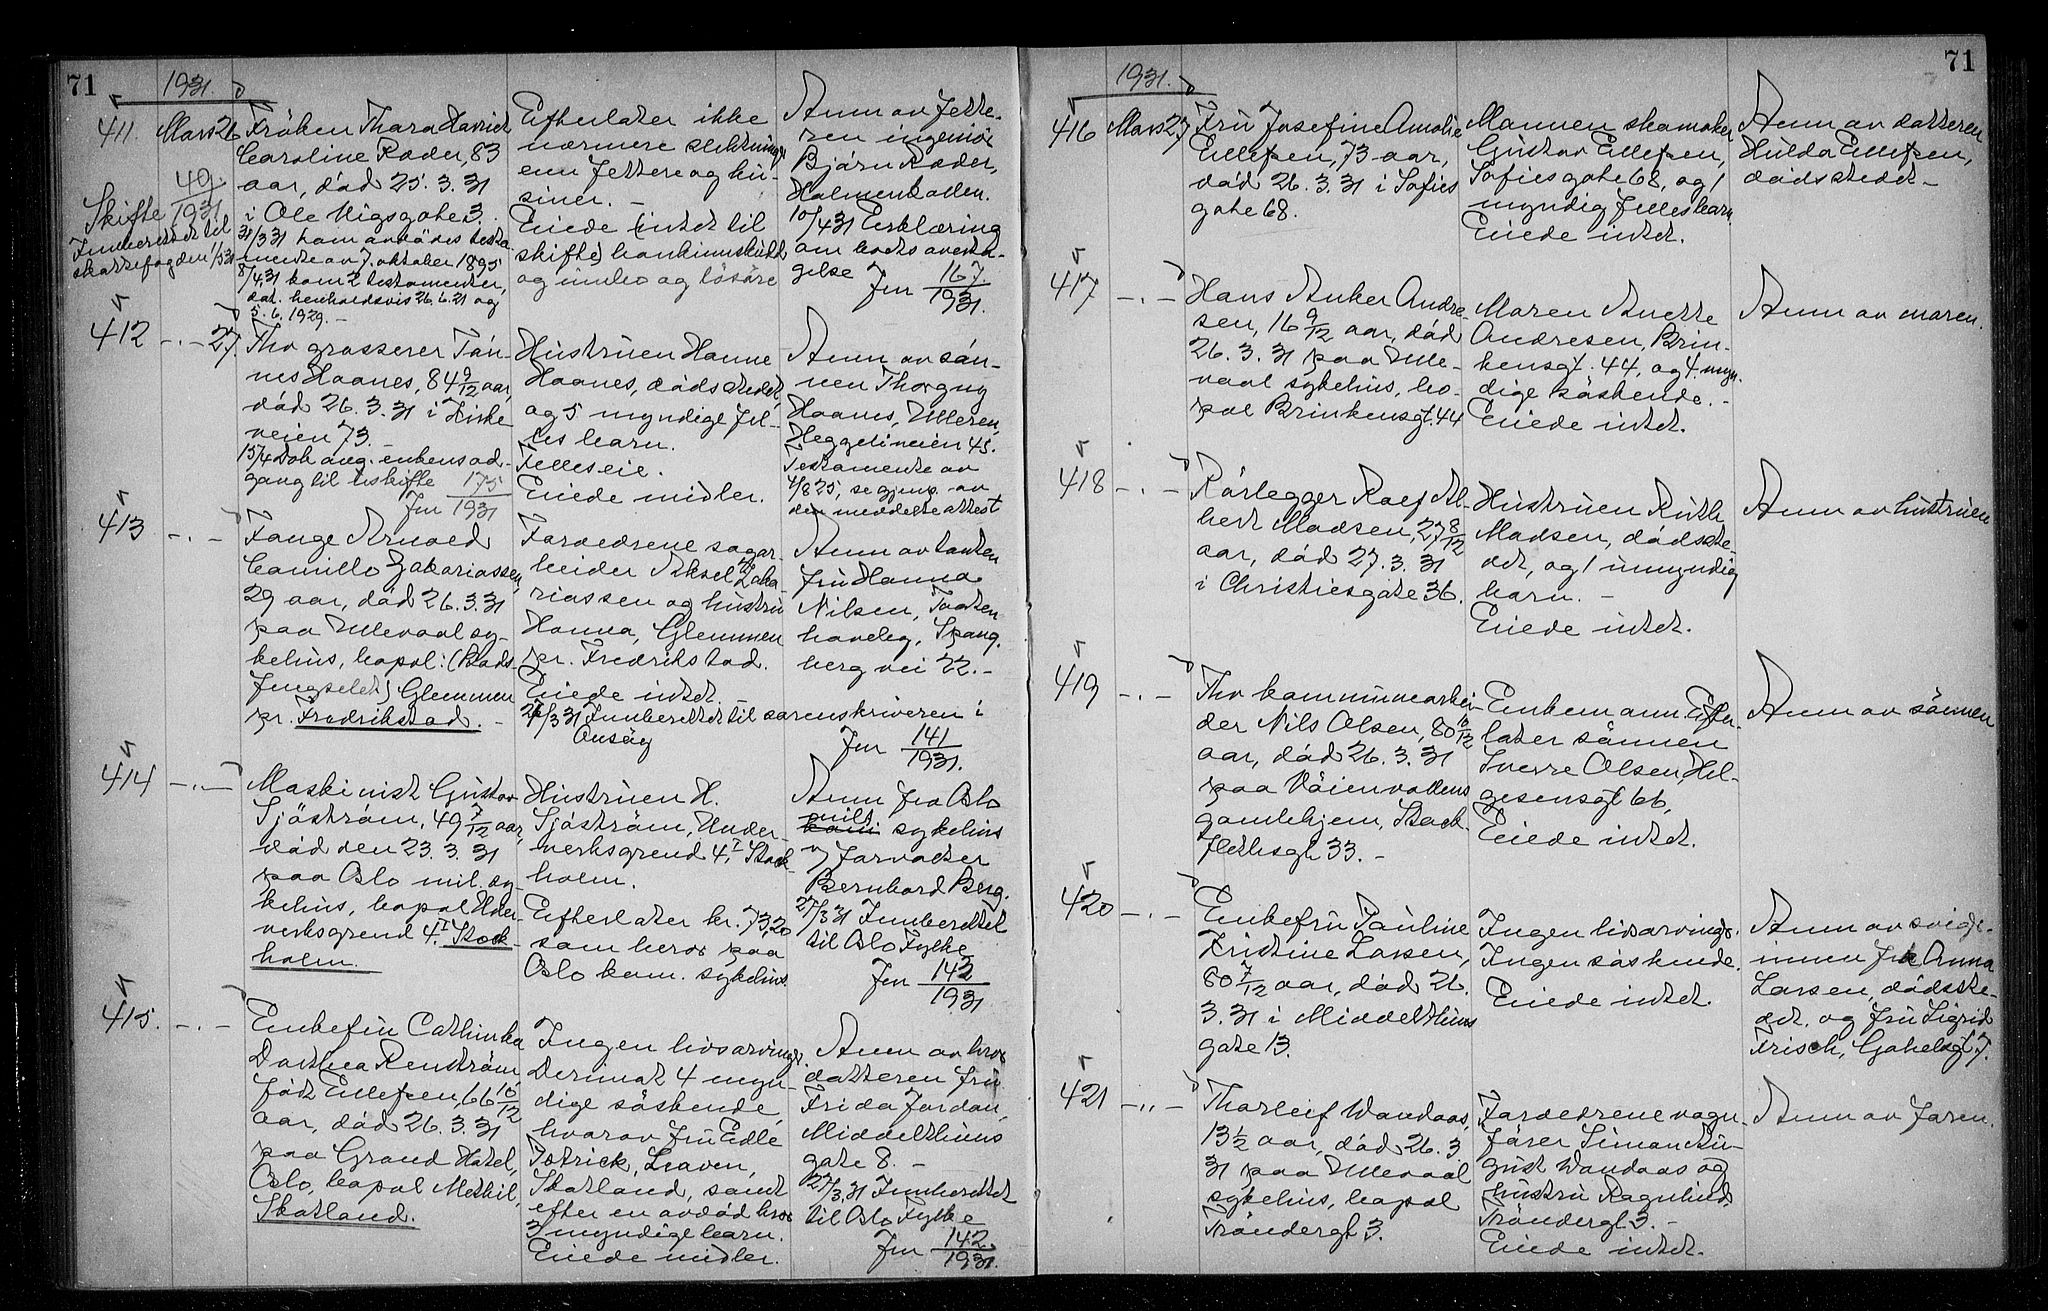 71
1931.
411. Mars 26
Frøken Thora Harriet
Caroline Rader, 83
aar, död 25.3.31
i Ole Vigsgate 3.
31/3 31 kom avdødes testa-
mente av 7. oktober 1895
8/4.31 kom 2 testamenter,
dat. henholdsvis 26.6.21 og
5.6.1929. -
49
1931
Skifte
Innberettet til
skattefogden 1/5 31
Efterlater ikke
nærmere slektninger
enn fettere og ku-
siner. -
Eiede (intet til
skifte)
og innbo og lösöre
Anm av fette-
ren ingeniör
Bjørn Rader,
Holmenkollen.
10/4 31 Erklæring
om boets overta-
gelse
Jnr 167.
1931.
412 -.- 27.
Fhv grosserer Tön-
nes Haanes, 84 9/12 aar,
död 26.3.31 i Kirke
veien 73. -
15/4 Dok ang. enkens ad-
gang til uskifte
Jnr 175
1931
Hustruen Hanne
Haanes, dödsstedet,
og 5 myndige fel-
les barn.
Felleseie.
Eiede midler.
Anm av sön-
nen Thorgny
Haanes, Ulleren,
Heggeliveien 45.
Testamente av
4/8 25, se gjenp. av
den meddelte attest
413 -.-
Fange Arnold
Camillo Zakariassen,
29 aar, död 26.3.31
paa Ullevaal sy-
kehus, bopel: (Bods-
fengselet) Glemmen
pr. Fredrikstad. -
Foreldrene sagar-
beider Aksel Zaka-
riassen og hustru
Hanna, Glemmen
pr. Fredrikstad.
Eiede intet. -
27/3 31 Innberettet til sorenskriveren i
Onsöy
Anm av tanten
fru Hanna
Nilsen, Tosten
haveby, Spang.
berg vei 22. -
Jnr 141
1931.
414 -.-
Maskinist Gustav
Sjöström, 49 7/12 aar,
död den 23.3.31
paa Oslo mil. sy-
kehus, bopel Uder-
verksgrend 4.I Stock-
holm.
Hustruen H.
Sjöström, Uuder-
verksgrend 4.I Stock-
holm.
Efterlater kr. 73,20
som beror paa
Oslo kom. sykehus.
Anm fra Oslo
mil. sykehus
v/ forvalter
Bernhard Berg.
27/3 31 Innberettet
til Oslo Fylke
Jnr 142
1931
415. -.-
Enkefru Cathinka
Dorthea Renström,
född Ellefsen, 66 10/12
aar, död 26.3.31
paa Grand Hotel,
Oslo, bopel Methil,
Skotland.
Ingen livsarvinger.
Derimot 4 myn-
dige söskende,
hvorav fru Edle
Potrick, Leaven,
Skotland, samt
efter en avdød bror
3 myndige barn.
Eiede midler.
Anm av bror
datteren fru
Frida Jordan,
Middelthuns
gate 8. -
27/3.31 Innberettet
til Oslo Fylke
Jnr 142.
1931.
71
1931.
416 Mars 27.
Fru Josefine Amalie
Ellefsen, 73 aar,
död 26.3.31 i Sofies
gate 68.
Mannen skomaker
Gustav Ellefsen,
Sofies gate 68, og 1
myndig fellesbarn.
Eiede intet.
Anm av datteren
Hulda Ellefsen,
dödsstedet -
417 -.-
Hans Anker Andre-
sen, 16 9/12 aar, död
26.3.31 paa Ulle-
vaal sykehus, bo-
pel Brinkensgt. 44
Moren Anette
Andresen, Brin-
kensgt. 44, og 4 myn-
dige söskende. -
Eiede intet.
Anm av moren.
418 -.-
Rörlegger Rolf Al-
bert Madsen, 27 8/12
aar, död 27.3.31
i Christiesgate 36.
Hustruen Ruth
Madsen, dödsste-
det, og 1 umyndig
barn. -
Eiede intet.
Anm av hustruen
419 -.-
Fhv kommunearbei-
der Nils Olsen, 80 10/12
aar, död 26.3.31
paa Vöienvollens
gamlehjem, Stock-
flethsgt 33. -
Enkemann. Efter-
later sönnen
Sverre Olsen, Hel-
gesensgt 66,
Eiede intet.
Anm av sönnen
420 -.-
Enkefru Pauline
Kristine Larsen,
80 7/12 aar, död 26.
3.31 i Middelthuns
gate 13.
Ingen livsarvinger.
Ingen söskende.
Eiede intet.
Anm av svige-
innen frk Anna
Larsen, dödsste-
det, og fru Sigrid
Frisch, Gabelsgt 7.
421 -„-
Thorleif Wandaas,
13 1/2 aar, död 26.3.
31 paa Ullevaal
sykehus, bopel
Tröndergt 3.
Foreldrene vogn-
förer Simon Au-
gust Wandaas og
hustru Ragnhild,
Tröndergt 3. -
Eiede intet.
Anm av faren.